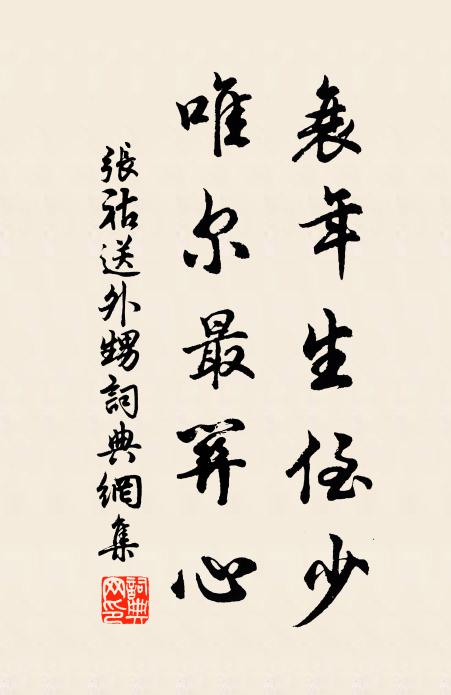 衰年生侄少
唯尔最關心
張祜送外甥詞典網集
詞典
网印